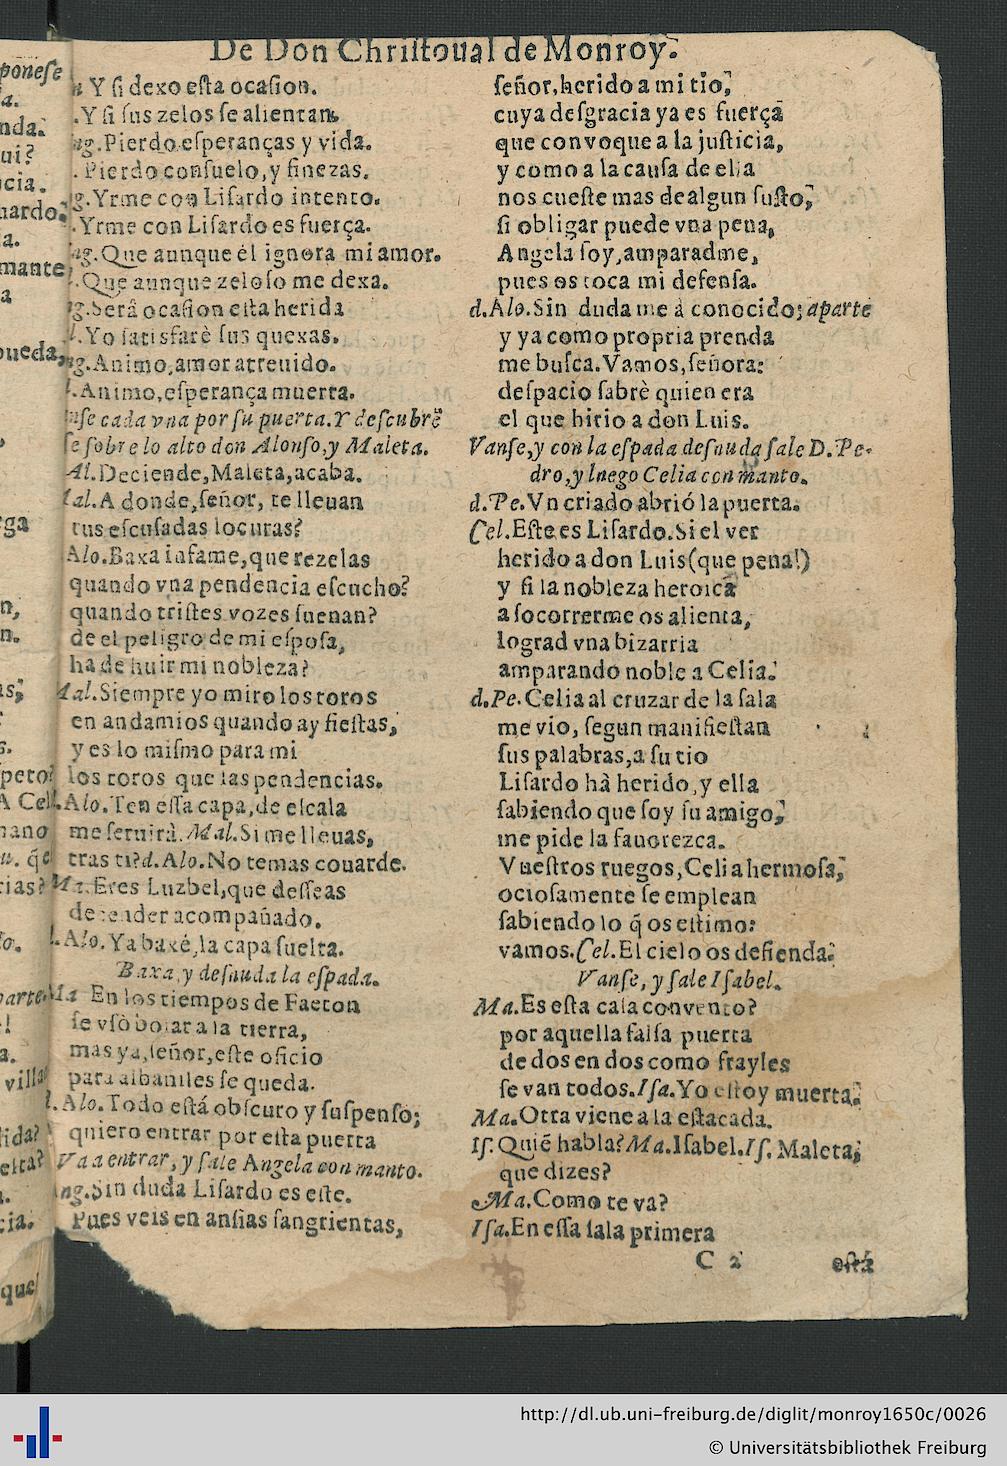 De Don Chriſtoual de Monroy.
Y ſi dexo eſta ocaſion.
.Y ſi ſus zelos ſe alientan.
ng.Pierdo eſperanças y vida.
. Pierdo conſuelo,y finezas.
g.Yrme con Liſardo intento.
.Yrme con Liſardo es fuerça.
ng.Que aunque él ignora mi amor.
.Que aunque zeloſo me dexa.
g.Será ocaſion eſta herida
l.Yo ſatisfarè ſus quexas.
ng.Animo,amor atreuido.
l.Animo,eſperança muerta.
nſe cada vna por ſu puerta.Y deſcubrẽ
ſe ſobre lo alto don Alonſo,y Maleta.
Al.Deciende,Maleta,acaba.
Mal.A donde,ſeñor, te lleuan
tus eſcuſadas locuras?
Alo.Baxa infame,que rezelas
quando vna pendencia eſcucho?
quando triſtes vozes ſuenan?
de el peligro de mi eſpoſa,
ha de huir mi nobleza?
Mal.Siempre yo miro los toros
en andamios quando ay fieſtas,
y es lo miſmo para mi
los toros que las pendencias.
Alo.Ten eſſa capa,de eſcala
me ſeruirà.Mal.Si me lleuas,
tras ti?d.Alo.No temas couarde.
Ma.Eres Luzbel,que deſſeas
decender acompañado.
l.Alo.Ya baxé,la capa ſuelta.
Baxa,y deſnuda la eſpada.
Ma En los tiempos de Faeton
ſe vſò bolar a la tierra,
mas ya,ſeñor,eſte oficio
para albañiles ſe queda.
l.Alo.Todo eſtá obſcuro y ſuſpenſo;
quiero entrar por eſta puerta
Va a entrar, y ſale Angela con manto.
Ang.Sin duda Liſardo es eſte.
Pues veis en anſias ſangrientas,
ſeñor,herido a mi tio,
cuya deſgracia ya es fuerça
que convoque a la juſticia,
y como a la cauſa de ella
nos cueſte mas de algun ſuſto,
ſi obligar puede vna pena,
Angela ſoy,amparadme,
pues os toca mi defenſa.
d.Alo.Sin duda me à conocido; aparte
y ya como propria prenda
me buſca.Vamos,ſeñora:
deſpacio ſabrè quien era
el que hirio a don Luis.
Vanſe,y con la eſpada deſnuda ſale D. Pe-
dro,y luego Celia con manto.
d.Pe.Vn criado abrió la puerta.
Cel.Eſte es Liſardo.Si el ver
herido a don Luis(que pena!)
y ſi la nobleza heroica
a ſocorrerme os alienta,
lograd vna bizarria
amparando noble a Celia.
d.Pe.Celia al cruzar de la ſala
me vio, ſegun manifieſtan
ſus palabras,a ſu tio
Liſardo hà herido,y ella
ſabiendo que ſoy ſu amigo,
me pide la fauorezca.
Vueſtros ruegos,Celia hermoſa,
ocioſamente ſe emplean
ſabiendo lo q̃ os eſtimo:
vamos.Cel.El cielo os defienda.
Vanſe, y ſale Iſabel.
Ma.Es eſta caſa convento?
por aquella falſa puerta
de dos en dos como frayles
ſe van todos.Iſa.Yo eſtoy muerta.
Ma.Otra viene a la eſtacada.
Iſ.Quiẽ habla?Ma.Iſabel.Iſ. Maleta,
que dizes?
Ma.Como te va?
Iſa.En eſſa ſala primera
C 2 eſtá
http://dl.ub.uni-freiburg.de/diglit/monroy1650c/0026
© Universitätsbibliothek Freiburg